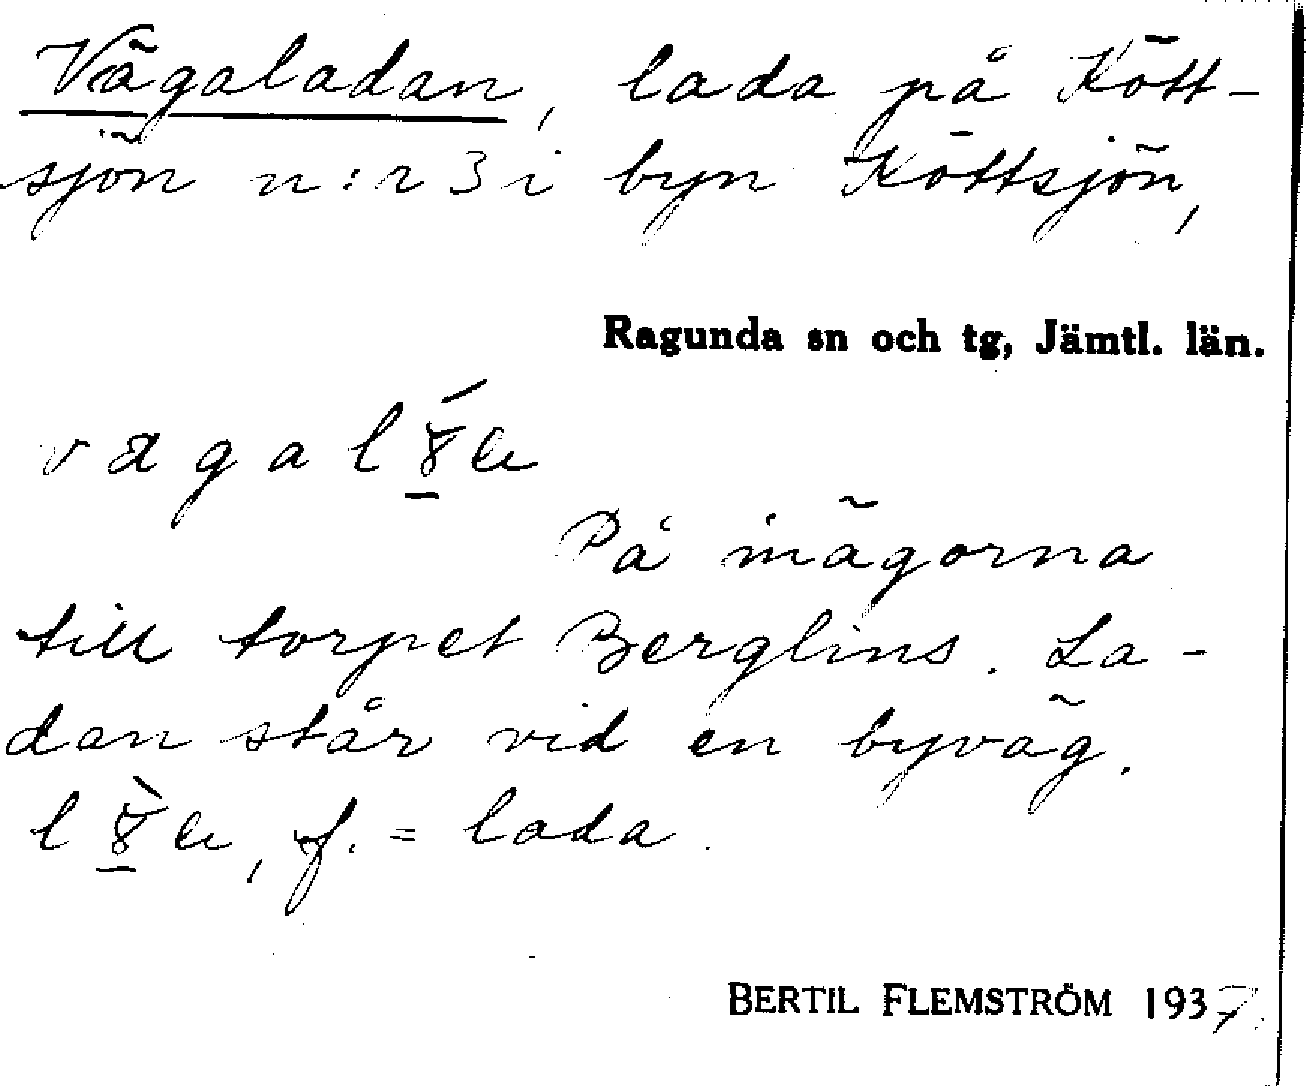 Vägaladan, lada på Kött-
sjön n:r 3 i byn Köttsjön,
Ragunda sn och tg, Jämtl. län.
På inägorna
till torpet Berglins. La-
dan står vid en byväg.
f. = lada.
BERTIL FLEMSTRÖM 1937.